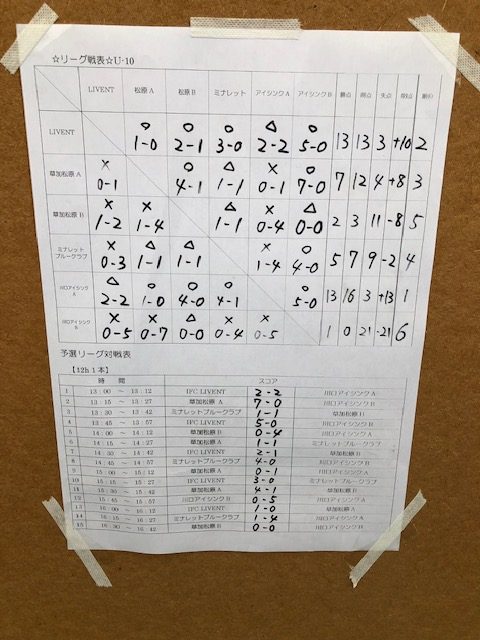 ☆リーグ戦表☆U-10
LIVENT 松原A 松原B ミナレット アイシンクA アイシンクB 勝点 得点 失点 得失点 順位
LIVENT ○ 1-0 ○ 2-1 ○ 3-0 △ 2-2 ○ 5-0 13 13 3 +10 2
草加松原 A × 0-1 ○ 4-1 △ 1-1 × 0-1 ○ 7-0 7 12 4 +8 3
草加松原 B × 1-2 × 1-4 △ 1-1 × 0-4 △ 0-0 2 3 11 -8 5
ミナレットブルークラブ × 0-3 △ 1-1 △ 1-1 × 1-4 ○ 4-0 7 9 -2 4
川口アイシンク A △ 2-2 ○ 1-0 ○ 4-0 ○ 4-1 ○ 5-0 13 16 3 +13 1
川口アイシンク B × 0-5 × 0-7 △ 0-0 × 0-4 × 0-5 1 0 21 -21 6
予選リーグ対戦表
【12h1本】
時間 スコア
1 13:00 ～ 13:12 IFC LIVENT 2-2 川口アイシンク A
2 13:15 ～ 13:27 草加松原 A 7-0 川口アイシンク B
3 13:30 ～ 13:42 ミナレットブルークラブ 1-1 草加松原 B
4 13:45 ～ 13:57 IFC LIVENT 5-0 川口アイシンク B
5 14:00 ～ 14:12 草加松原 B 0-4 川口アイシンク A
6 14:15 ～ 14:27 草加松原 A 1-1 ミナレットブルークラブ
7 14:30 ～ 14:42 IFC LIVENT 2-1 草加松原 B
8 14:45 ～ 14:57 ミナレットブルークラブ 4-0 川口アイシンク B
9 15:00 ～ 15:12 草加松原 A 0-1 川口アイシンク A
10 15:15 ～ 15:27 IFC LIVENT 3-0 ミナレットブルークラブ
11 15:30 ～ 15:42 草加松原 A 4-1 草加松原 B
12 15:45 ～ 15:57 川口アイシンク B 0-5 川口アイシンク A
13 16:00 ～ 16:12 IFC LIVENT 1-0 草加松原 A
14 16:15 ～ 16:27 ミナレットブルークラブ 1-4 川口アイシンク A
15 16:30 ～ 16:42 草加松原 B 0-0 川口アイシンク B